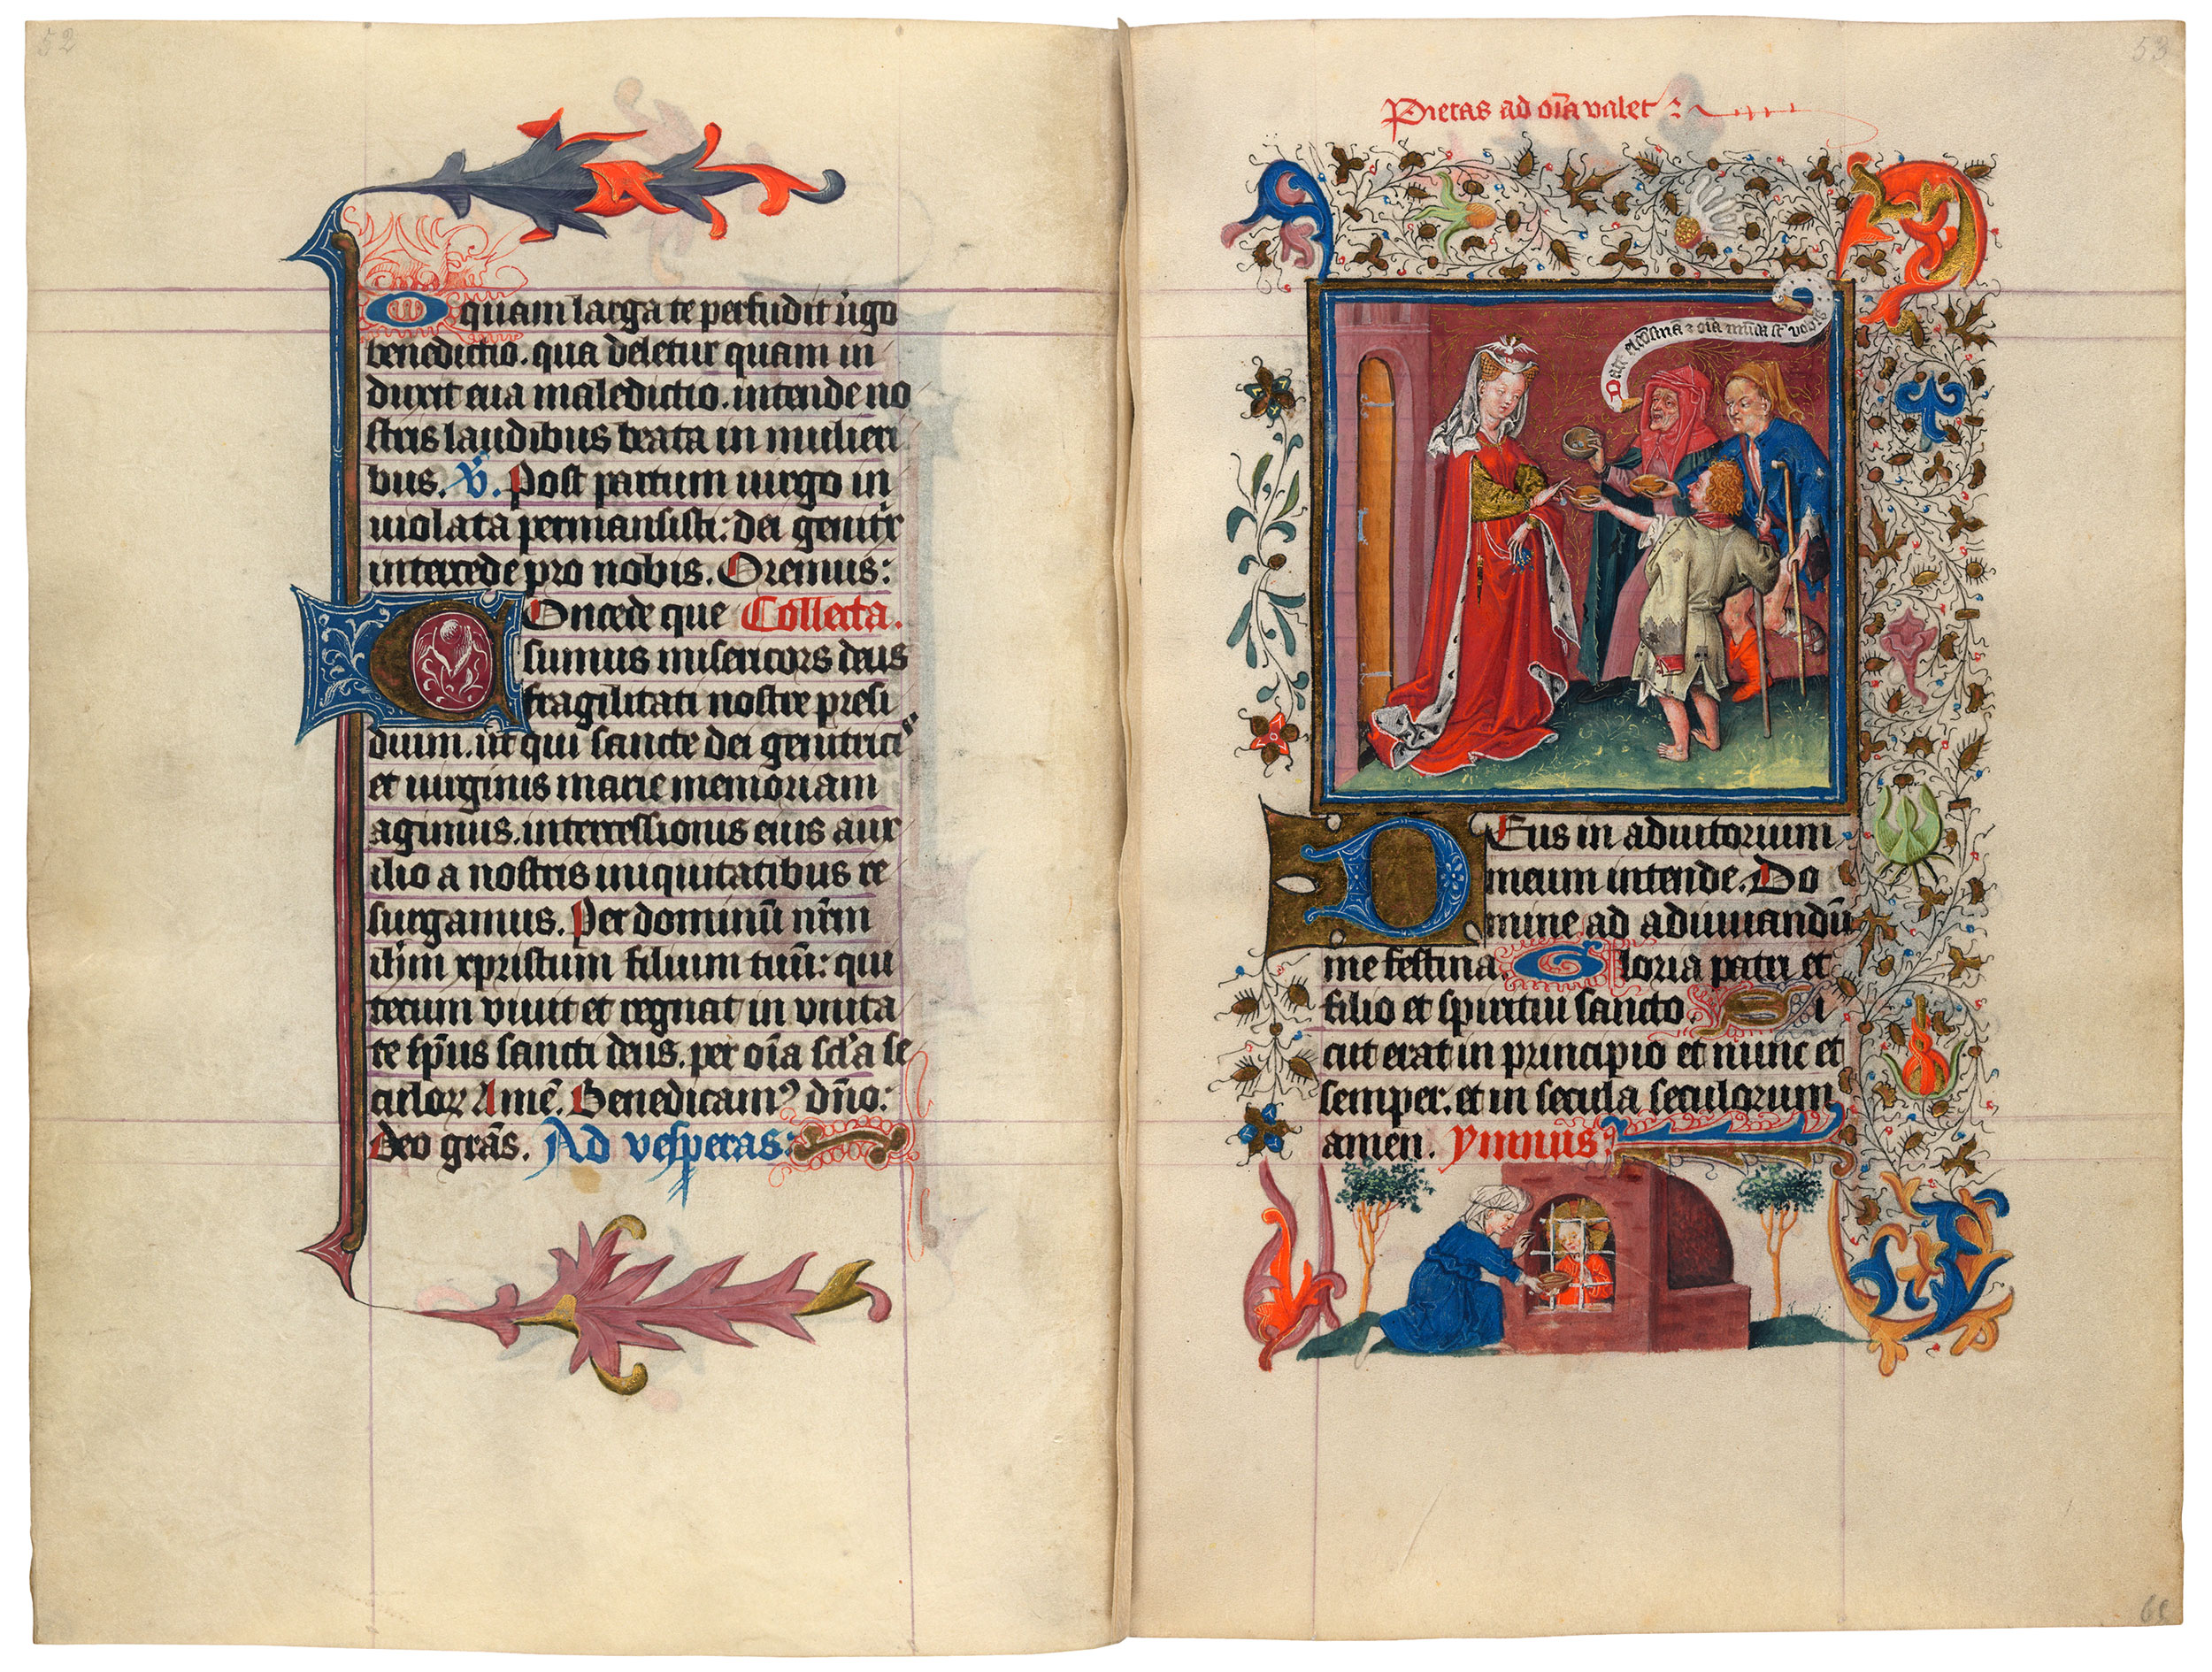 52
O quam larga te perfudit u̇go
benedictio. qua deletur quam in
duxit eua maledictio. intende no
stris laudibus beata in mulieri
bus. V̇. Post partum uirgo in
uiolata permansisti: dei genitͥx
intercede pro nobis. Oremus:
Concede que Collecta.
sumus misericors deus
fragilitati nostre presi
dium. ut qui sancte dei genitricis
et uirginis marie memoriam
agimus. intercessionis eius aux
ilio a nostris iniquitatibus re
surgamus. Per dominū nr̄m
ih̄m xpristum filium tuū: qui
tecum viuit et regnat in vnita
te sp̄us sancti deus. per oīa sc̄la se
culoꝝ Amē. Benedicamꝰ dn̄o:
Deo grās. Ad vesperas:
53
Pietas ad oīa valet
Date elemosina ⁊ oīa mūda st̄ vobis
DEus in adiutorium
meum intende. Do
mine ad adiuuandū
me festina. Gloria patri et
filio et spiritui sancto. Si
cut erat in principio et nunc et
semper. et in secula seculorum
amen. ymnus: